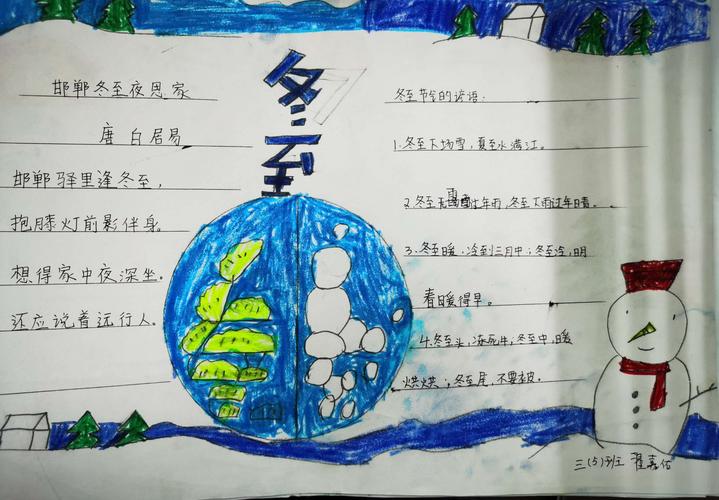 冬至
邯郸冬至夜思家
唐 白居易
邯郸驿里逢冬至，
抱膝灯前影伴身。
想得家中夜深坐，
还应说着远行人。
冬至节气的谚语：
1.冬至下场雪，夏至水满江。
2.冬至无雨过年雨，冬至下雨过年晴。
3.冬至暖，冷到三月中；冬至冷，明
春暖得早。
4.冬至头，冻死牛，冬至中，暖
烘烘，冬至尾，不要被。
三(5)班 翟嘉佑